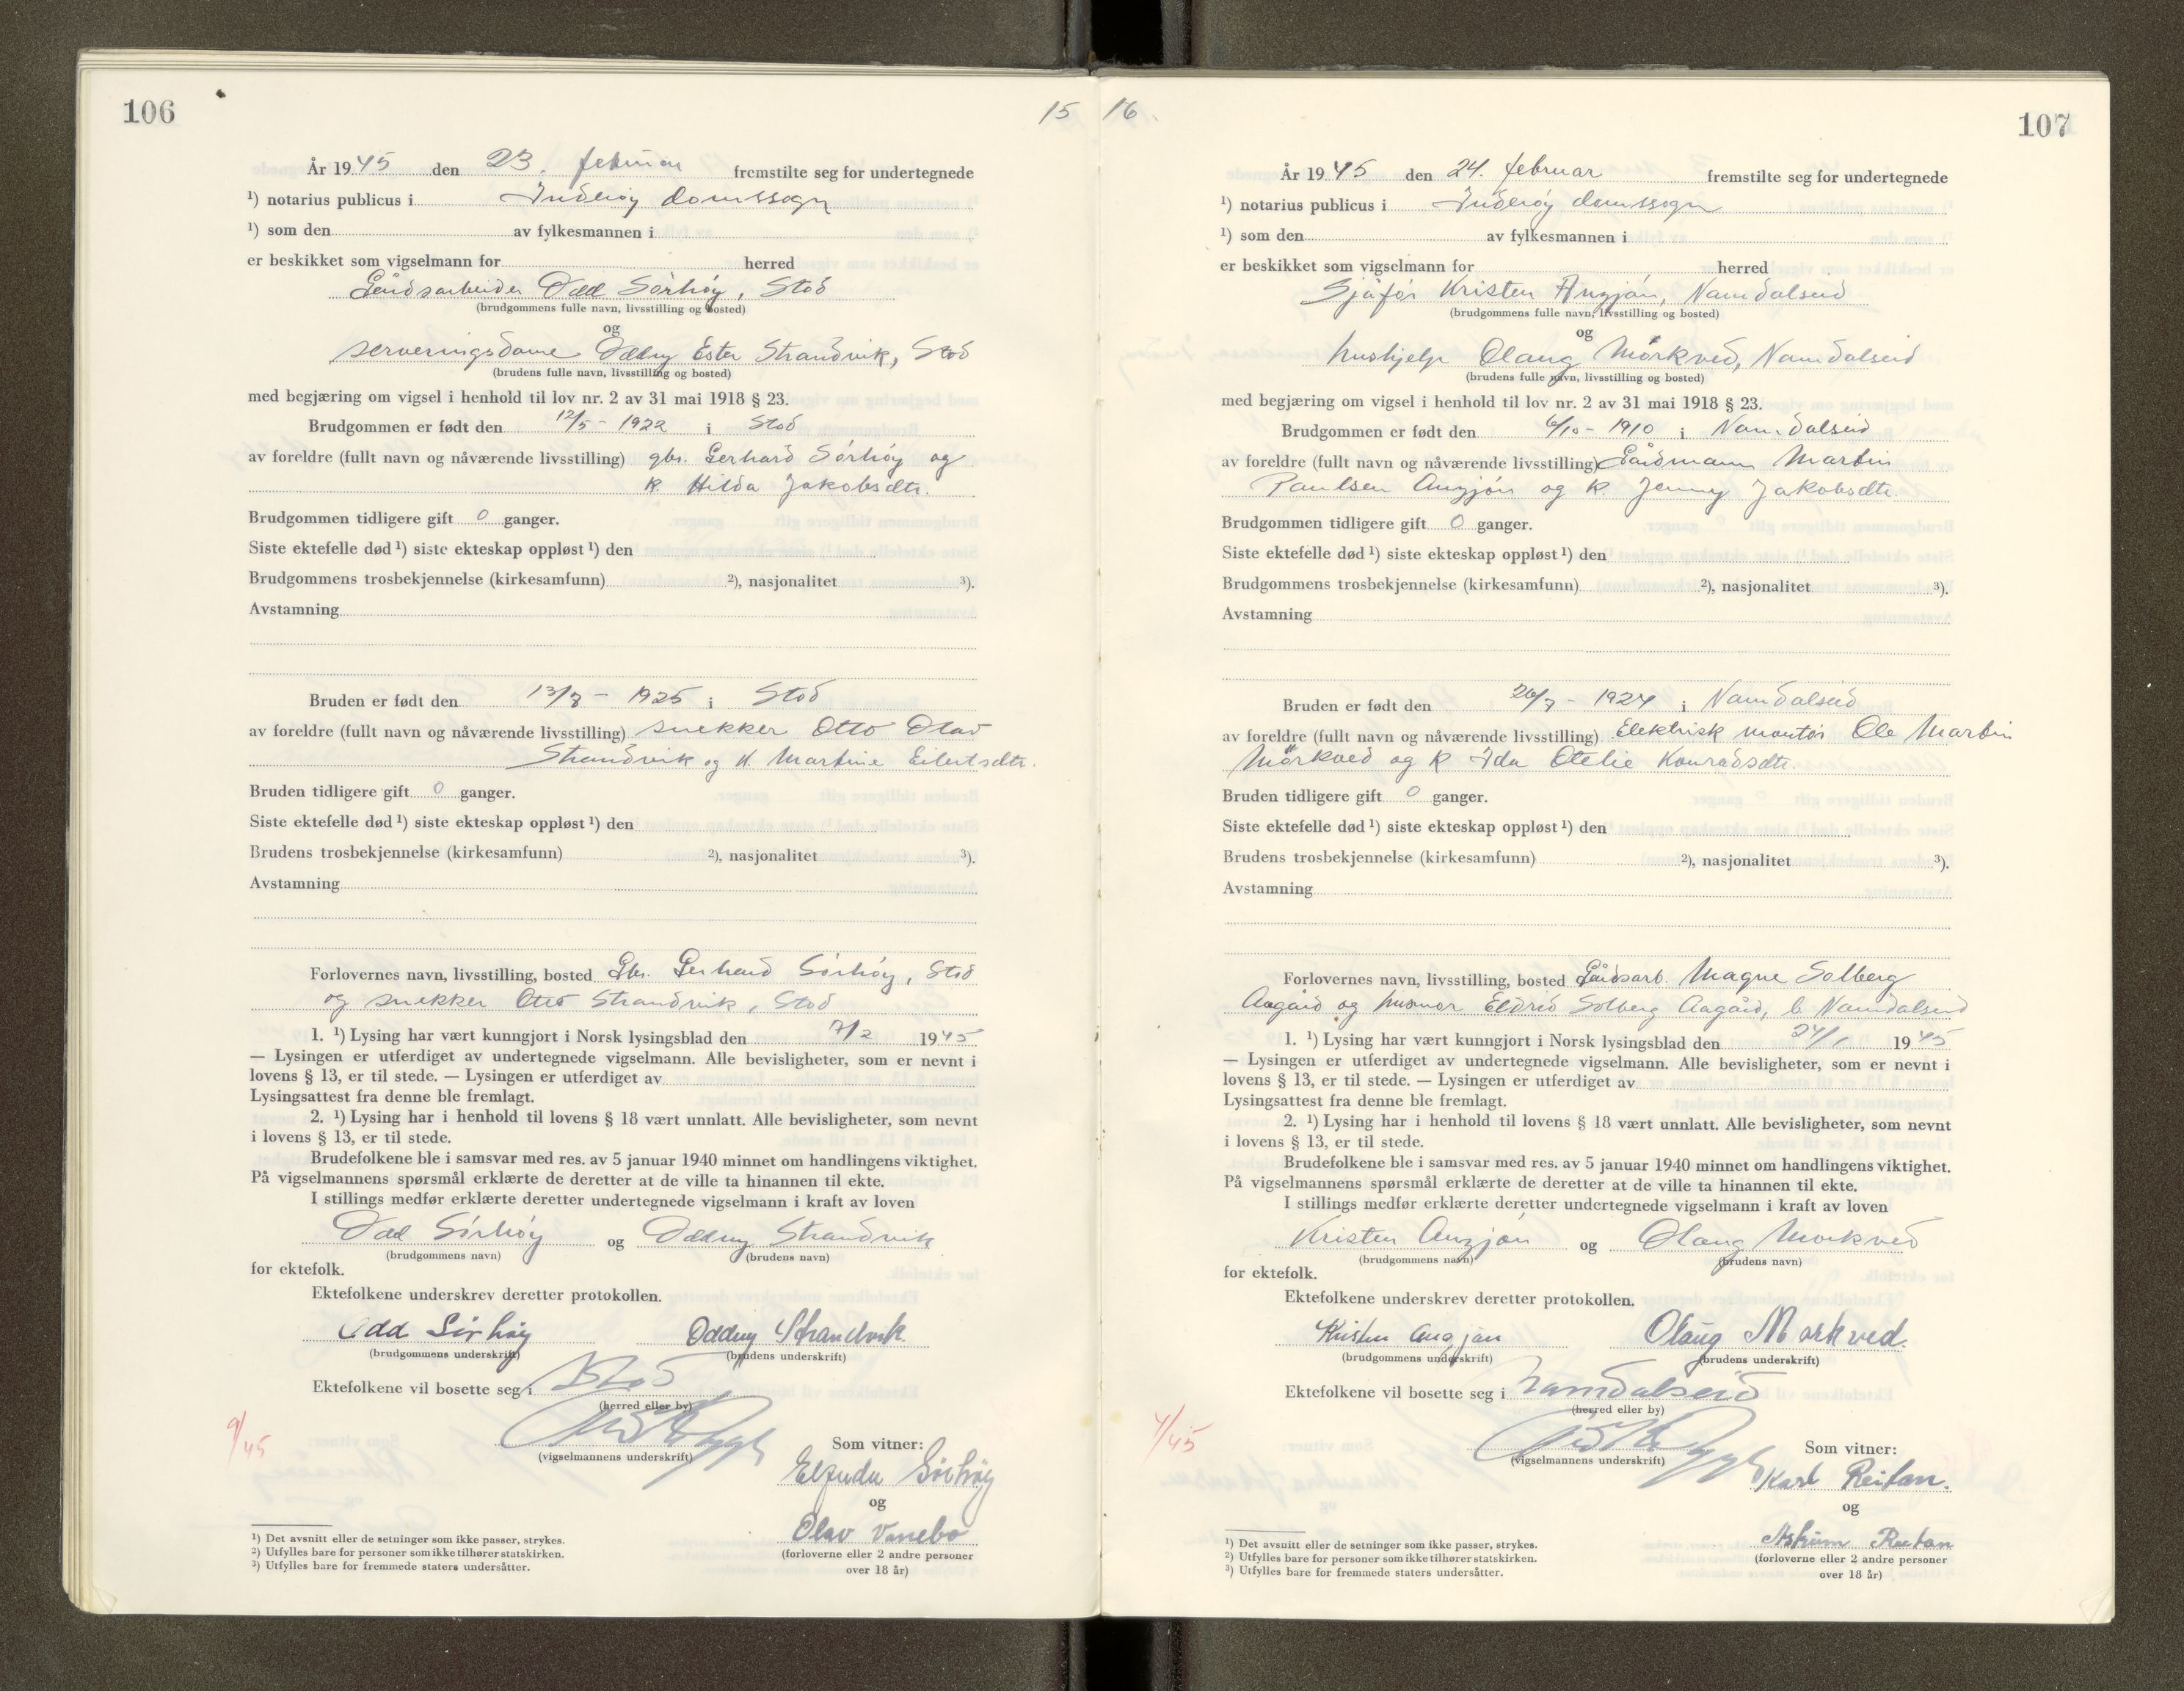 106
15
År 1945 den 23. februar fremstilte seg for undertegnede
¹) notarius publicus i Inderøy domssogn
¹) som den av fylkesmannen i
er beskikket som vigselmann for herred
Gårdsarbeider Odd Sörhöy, Stod
(brudgommens fulle navn, livsstilling og bosted)
og
serveringsdame Oddny Ester Strandvik, Stod
(brudens fulle navn, livsstilling og bosted)
med begjæring om vigsel i henhold til lov nr. 2 av 31 mai 1918 § 23.
Brudgommen er født den 12/5 - 1922 i Stod
av foreldre (fullt navn og nåværende livsstilling) gbr. Gerhard Sörhöy og
k. Hilda Jakobsdtr.
Brudgommen tidligere gift 0 ganger.
Siste ektefelle død ¹) siste ekteskap oppløst ¹) den
Brudgommens trosbekjennelse (kirkesamfunn) ²), nasjonalitet ³).
Avstamning
Bruden er født den 13/8 - 1925 i Stod
av foreldre (fullt navn og nåværende livsstilling) snekker Otto Olav
Strandvik og k. Martine Eilertsdtr.
Bruden tidligere gift 0 ganger.
Siste ektefelle død ¹) siste ekteskap oppløst ¹) den
Brudens trosbekjennelse (kirkesamfunn) ²), nasjonalitet ³).
Avstamning
Forlovernes navn, livsstilling, bosted Gbr. Gerhard Sörhöy, Stod
og snekker Otto Strandvik, Stod
1. ¹) Lysing har vært kunngjort i Norsk lysingsblad den 7/2 1945
— Lysingen er utferdiget av undertegnede vigselmann. Alle bevisligheter, som er nevnt i
lovens § 13, er til stede. — Lysingen er utferdiget av
Lysingsattest fra denne ble fremlagt.
2. ¹) Lysing har i henhold til lovens § 18 vært unnlatt. Alle bevisligheter, som nevnt
i lovens § 13, er til stede.
Brudefolkene ble i samsvar med res. av 5 januar 1940 minnet om handlingens viktighet.
På vigselmannens spørsmål erklærte de deretter at de ville ta hinannen til ekte.
I stillings medfør erklærte deretter undertegnede vigselmann i kraft av loven
Odd Sörhöy og Oddny Strandvik
(brudgommens navn) (brudens navn)
for ektefolk.
Ektefolkene underskrev deretter protokollen.
Odd Sörhöy Oddny Strandvik
(brudgommens underskrift) (brudens underskrift)
Ektefolkene vil bosette seg i Stod
(herred eller by)
9/45
(vigselmannens underskrift)
Som vitner:
Sörhöy
og
Olav Vanebo
(forloverne eller 2 andre personer
over 18 år)
¹) Det avsnitt eller de setninger som ikke passer, strykes.
²) Utfylles bare for personer som ikke tilhører statskirken.
³) Utfylles bare for fremmede staters undersåtter.
16
107
År 1945 den 24. februar fremstilte seg for undertegnede
¹) notarius publicus i Inderöy domssogn
¹) som den av fylkesmannen i
er beskikket som vigselmann for herred
Sjåför Kristen Angjön, Namdalseid
(brudgommens fulle navn, livsstilling og bosted)
og
hushjelp Olaug Mörkved, Namdalseid
(brudens fulle navn, livsstilling og bosted)
med begjæring om vigsel i henhold til lov nr. 2 av 31 mai 1918 § 23.
Brudgommen er født den 6/10 - 1910 i Namdalseid
av foreldre (fullt navn og nåværende livsstilling) Gårdmann Martin
Paulsen Angjön og k. Jenny Jakobsdtr.
Brudgommen tidligere gift 0 ganger.
Siste ektefelle død ¹) siste ekteskap oppløst ¹) den
Brudgommens trosbekjennelse (kirkesamfunn) ²), nasjonalitet ³).
Avstamning
Bruden er født den 26/7 - 1924 i Namdalseid
av foreldre (fullt navn og nåværende livsstilling) Elektrisk montör Ole Martin
Mörkved og k Ida Otelie Konradsdtr.
Bruden tidligere gift 0 ganger.
Siste ektefelle død ¹) siste ekteskap oppløst ¹) den
Brudens trosbekjennelse (kirkesamfunn) ²), nasjonalitet ³).
Avstamning
Forlovernes navn, livsstilling, bosted Gårdsarb. Magne Solberg
Aagård og husmor Eldrid Solberg Aagård, b. Namdalseid
1. ¹) Lysing har vært kunngjort i Norsk lysingsblad den 24/1 1945
— Lysingen er utferdiget av undertegnede vigselmann. Alle bevisligheter, som er nevnt i
lovens § 13, er til stede. — Lysingen er utferdiget av
Lysingsattest fra denne ble fremlagt.
2. ¹) Lysing har i henhold til lovens § 18 vært unnlatt. Alle bevisligheter, som nevnt
i lovens § 13, er til stede.
Brudefolkene ble i samsvar med res. av 5 januar 1940 minnet om handlingens viktighet.
På vigselmannens spørsmål erklærte de deretter at de ville ta hinannen til ekte.
I stillings medfør erklærte deretter undertegnede vigselmann i kraft av loven
Kristen Angjön og Olaug Morkved
(brudgommens navn) (brudens navn)
for ektefolk.
Ektefolkene underskrev deretter protokollen.
Kristen Angjön Olaug Morkved.
(brudgommens underskrift) (brudens underskrift)
Ektefolkene vil bosette seg i Namdalseid
(herred eller by)
7/45
(vigselmannens underskrift)
Som vitner:
Karl Reitan.
og
Reitan
(forloverne eller 2 andre personer
over 18 år)
¹) Det avsnitt eller de setninger som ikke passer, strykes.
²) Utfylles bare for personer som ikke tilhører statskirken.
³) Utfylles bare for fremmede staters undersåtter.